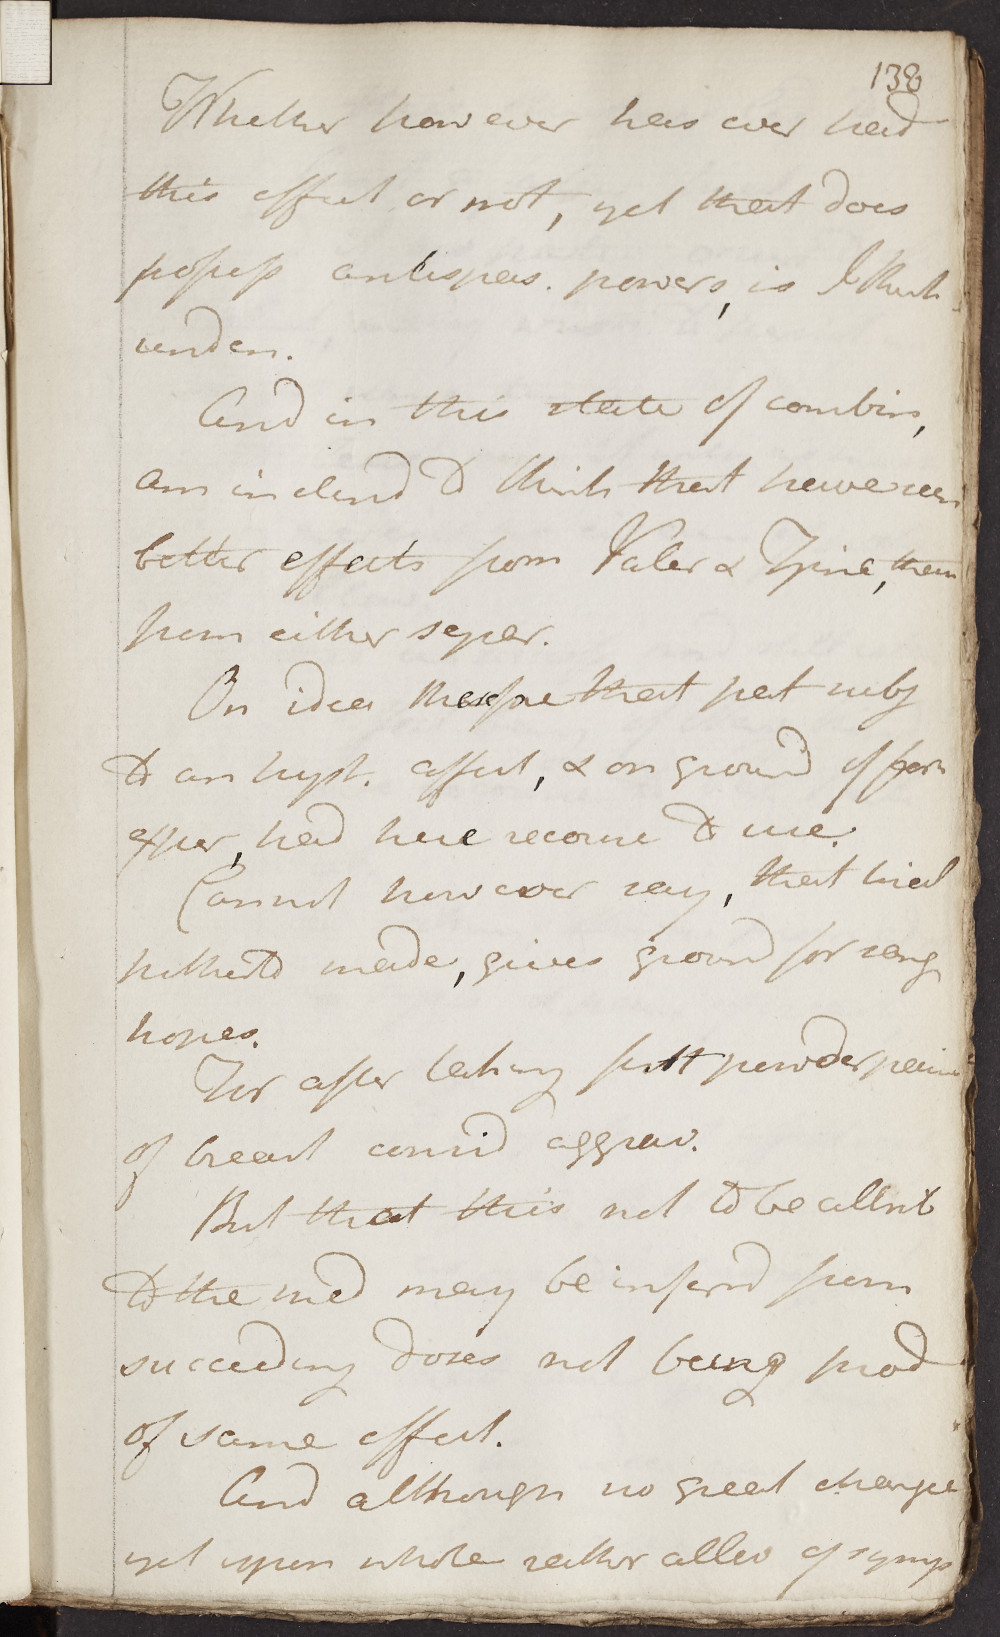 138
Whether however has ever had
this effect or not, yet that does
possess antispas. powers, is I think
unden.
And in this state of combin,
am inclind to think that have seen
better effects from Valer & Ipecac, than
from either separ.
On idea therefore that pat subj
to an hyst. affect, & on ground of form
exper, had here recourse to use.
Cannot however say, that trial
hitherto made, gives ground for sang
hopes.
For after taking first powder pain
of breast consid aggrav.
But that this not to be attrib
to the med may be inferrd from
succeeding doses not being prod
of same effect.
And although no great change
yet upon whole rather allev of symp